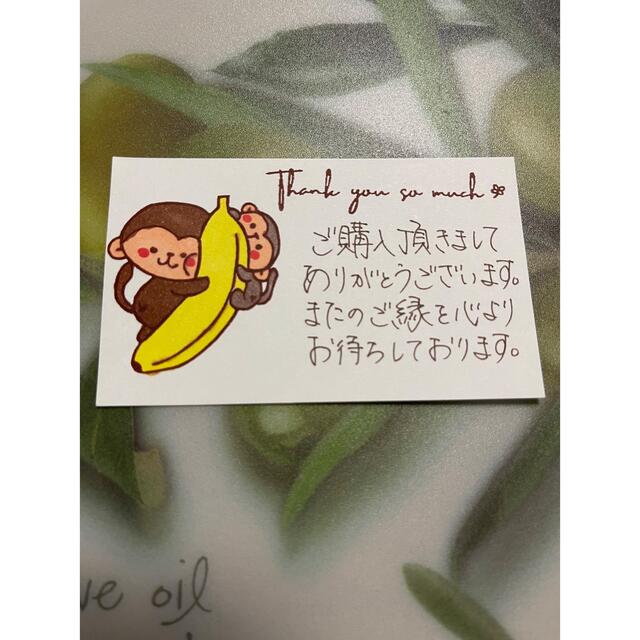 Thank you so much
ご購入頂きまして
ありがとうございます。
またのご縁を心より
お待ちしております。
ve oil